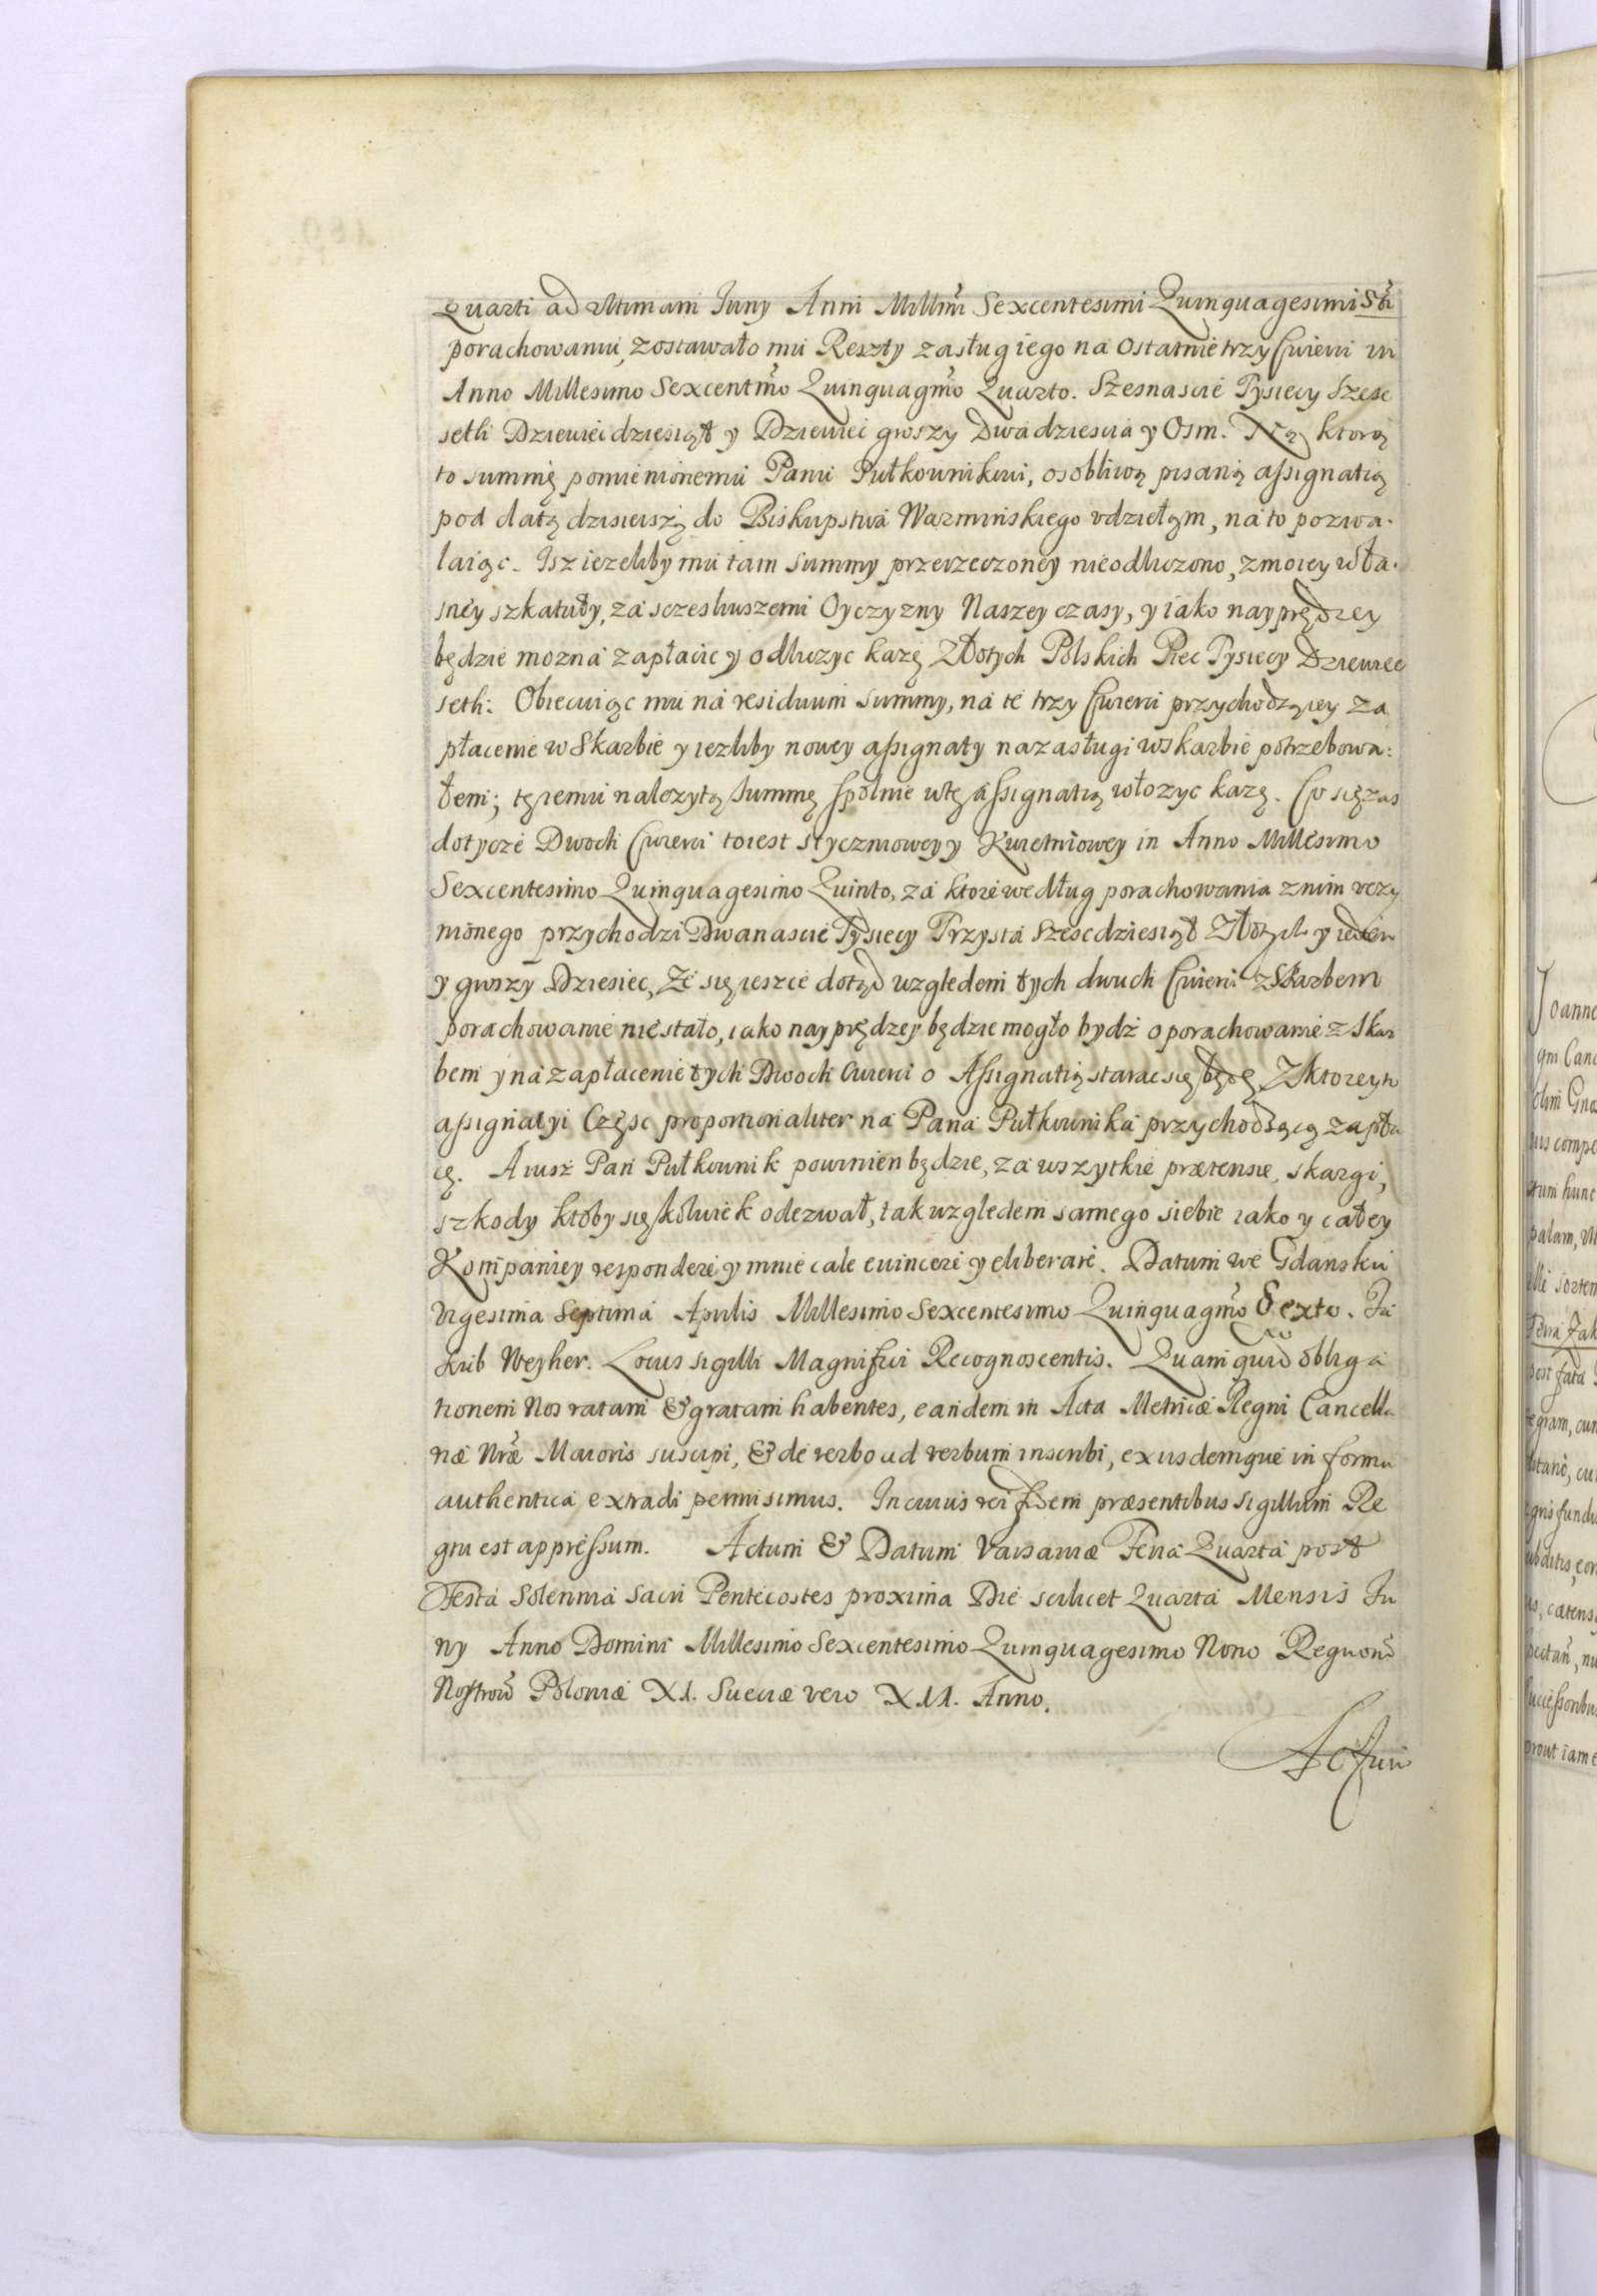 Quarti ad vltimam Iuny Anni Millmi Sexcentesimi Quinquagesimi Sti
porachowaniu, zostawało mu Reszty zasług iego na ostatnie trzy Cwierci in
Anno Millesimo Sexcentmo Quinquagmo Quarto. Szesnascie Tysięcy Szesc
seth Dziewiecdziesiąt y Dziewiec groszy Dwadziescia y Osm. Na ktorą
to summę pomienionemu Panu Pułkownikowi, osobliwą pisaną assignatią
pod datą dzisieiszą do Biskupstwa Warminskiego vdziełęm, na to pozwa-
laiąc. Isz iezeliby mu tam summy przerzeczoney nieodliczono, zmoiey wła-
sney szkatuły, za sczesliwszemi Oyczyzny Naszey czasy, y iako nayprędzey
będzie mozna zapłacic y odliczyc kazę Złotych Polskich Piec Tysięcy Dziewiec
seth: Obiecuiąc mu na residuum summy, na te trzy Cwierci przychodzącey za
płacenie w Skarbie y iezliby nowey assignaty na zasługi w skarbie potrzebowa:
łem; tę iemu nalezytą summę spolnie w tę assignatią włozyc kazę. Co się zas
dotycze Dwoch Cwierci toiest styczniowey y Kwietniowey in Anno Millesimo
Sexcentesimo Quinquagesimo Quinto, za ktore według porachowania znim vczy
nionego przychodzi Dwanascie Tysięcy Trzysta Szescdziesiąt Złotych y ieden
y groszy Dziesiec, Ze się iescze dotąd względem tych dwuch Cwierci z Skarbem
porachowanie nie stało, iako nayprędzey będzie mogło bydź o porachowanie z Skar
bem y na zapłacenie tych Dwoch Cwierci o Assignatią starac się będę, Z ktoreyto
assignatyi Częsc proportionaliter na Pana Pułkownika przychodzącą zapła
cę. A iusz Pan Pułkownik powinien będzie, za wszytkie prætensie, skargi,
szkody ktoby się kolwiek odezwał, tak względem samego siebie iako y całey
Kompaniey respondere y mnie cale evincere y eliberare. Datum we Gdansku
Vigesima Septima Aprilis Millesimo Sexcentesimo Quinquagmo Sexto. Ja
kub Weyher. Locus sigilli Magnifici Recognoscentis. Quam quid obliga
tionem Nos ratam & gratam habentes, eandem in Acta Metricæ Regni Cancella
riæ Nræ Maioris suscipi, & de verbo ad verbum inscribi, ex iisdemque in forma
authentica extradi permisimus. In cuius rei fidem præsentibus sigillum Re
gni est appressum. Actum & Datum Varsaviæ Feria Quarta post
Festa Solennia Sacri Pentecostes proxima Die scilicet Quarta Mensis Iu
ny Anno Domini Millesimo Sexcentesimo Quinquagesimo Nono Regnorũ
Nostrorũ Poloniæ XI. Sueciæ vero XII. Anno.
Actum